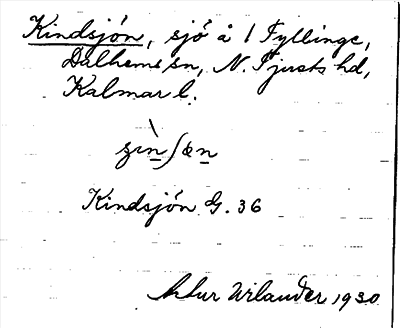 Kindsjön, sjö å 1 Fyllinge,
Dalhems sn, N. Tjusts hd,
Kalmar l.
Kindsjön G. 36
Artur Wilander 1930